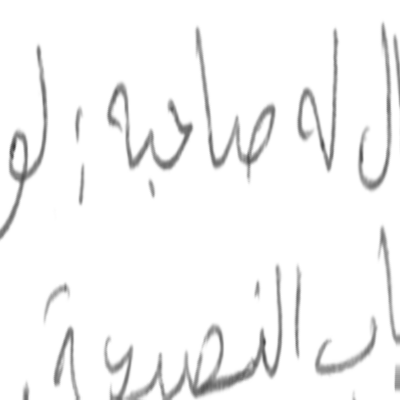 ال له صاحبه : لو
اب النصيحة